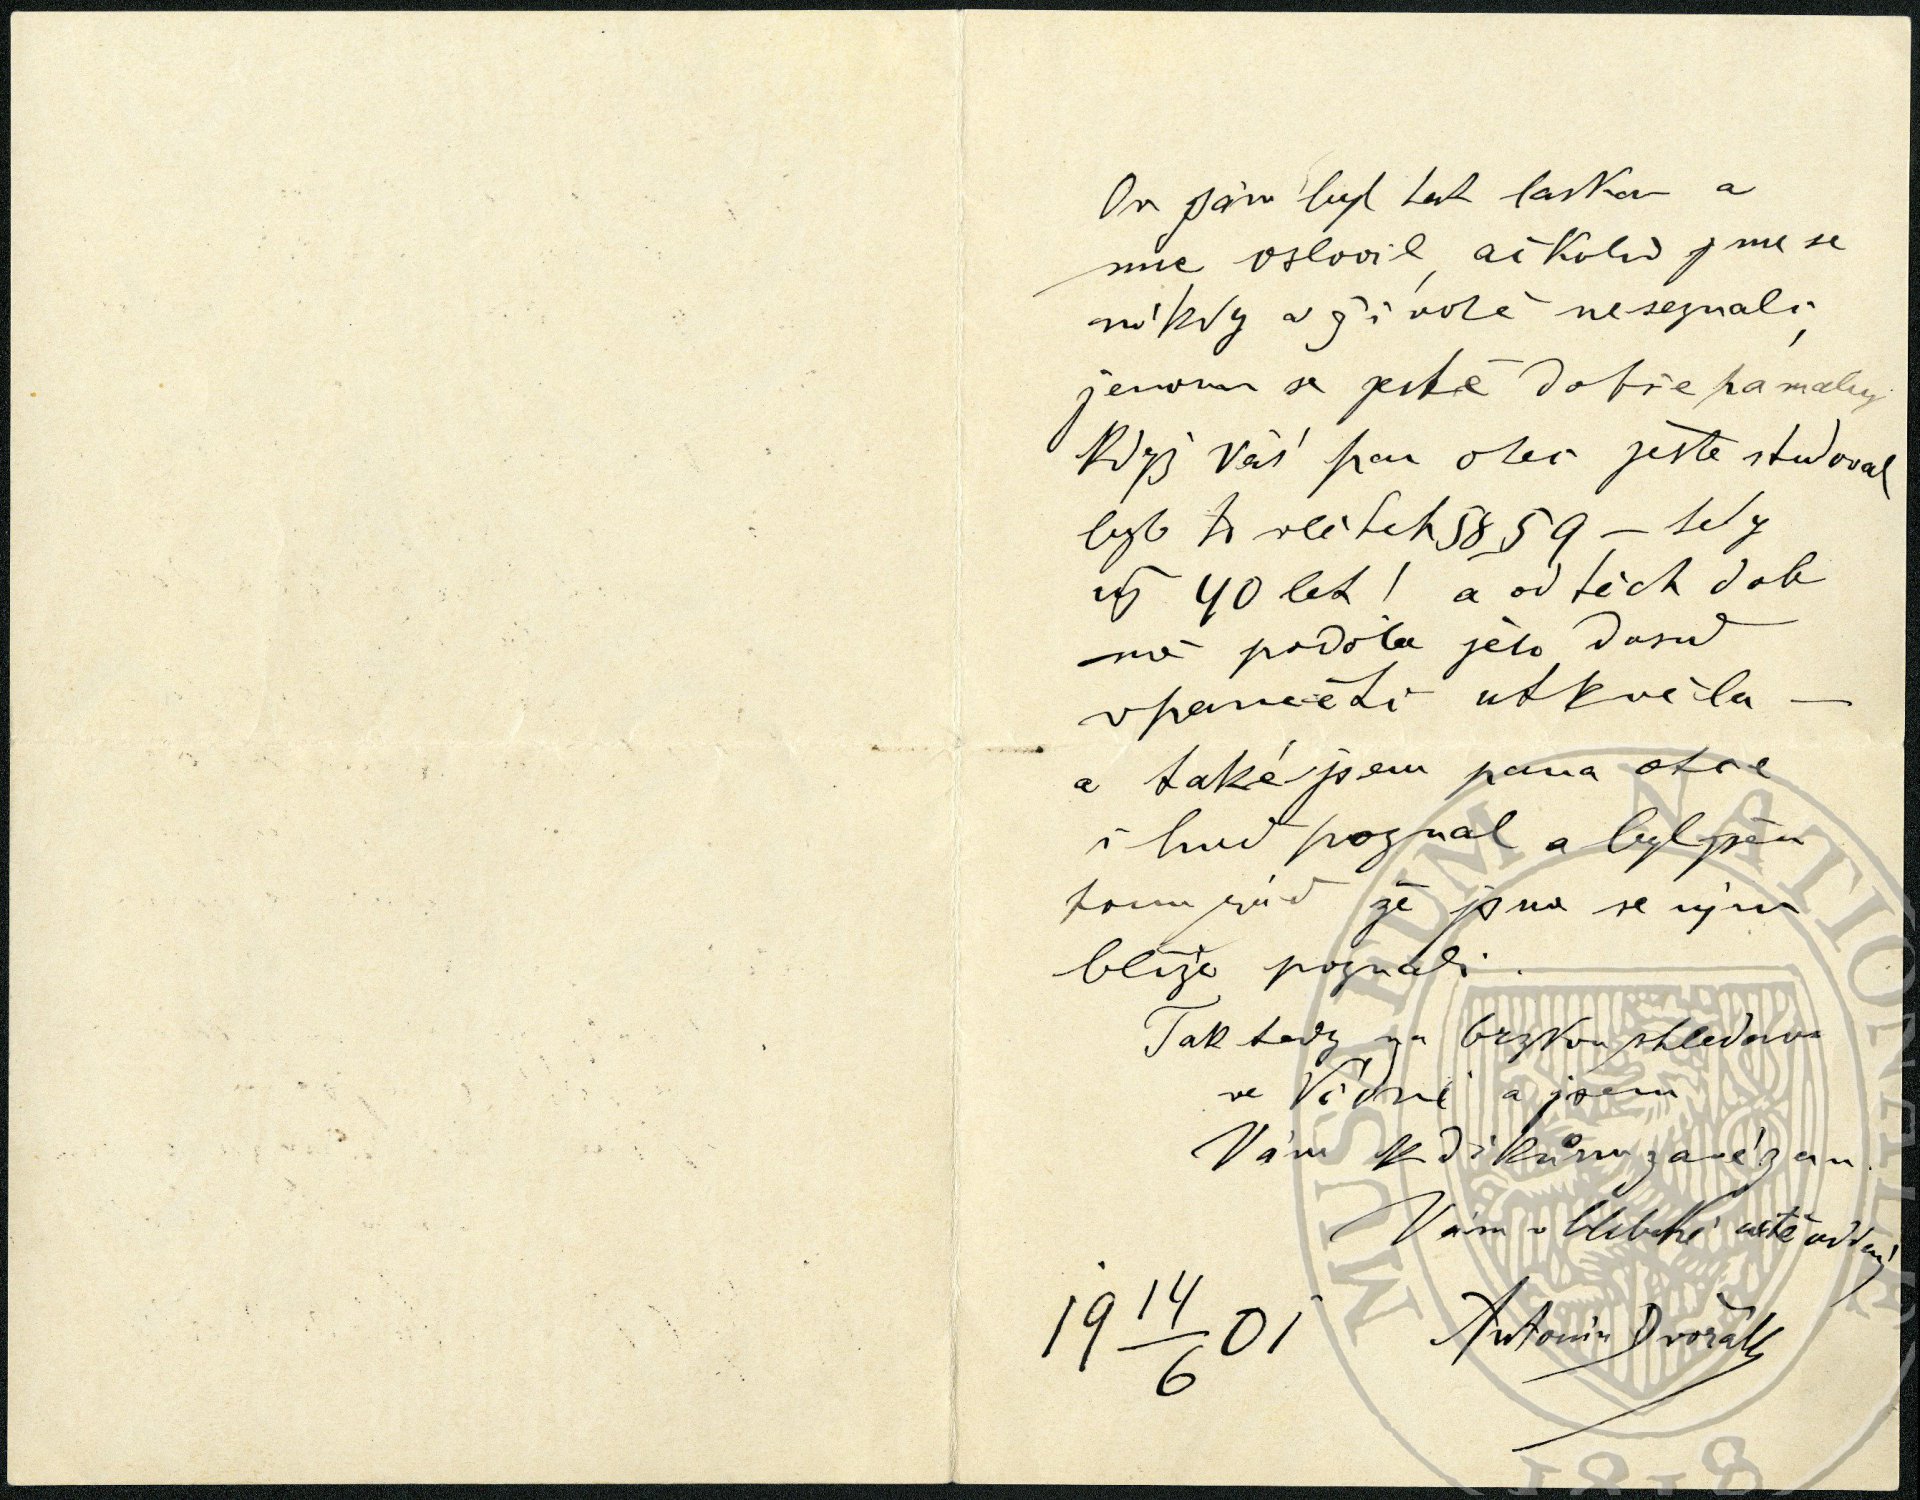 On sám byl tak laskav a
mne oslovil, ačkoliv jsme se
nikdy v životě neseznali,
jenom se ještě dobře pamatuji
když Váš pan otec ještě studoval
bylo to v létech 58 59 – tedy
už 40 let! a od těch dob
mě podoba jeho dosud
v paměti utkvěla –
a také jsem pana otce
i hned poznal a byl jsem
tomu rád že jsme se s ním
blíže poznali.
Tak tedy na brzkou shledanou
ve Vídni a jsem
Vám k díkům zavázán.
Vám v hluboké úctě oddaný
19 14/6 01 Antonín Dvořák
MUSEUM NATIONALE
1818